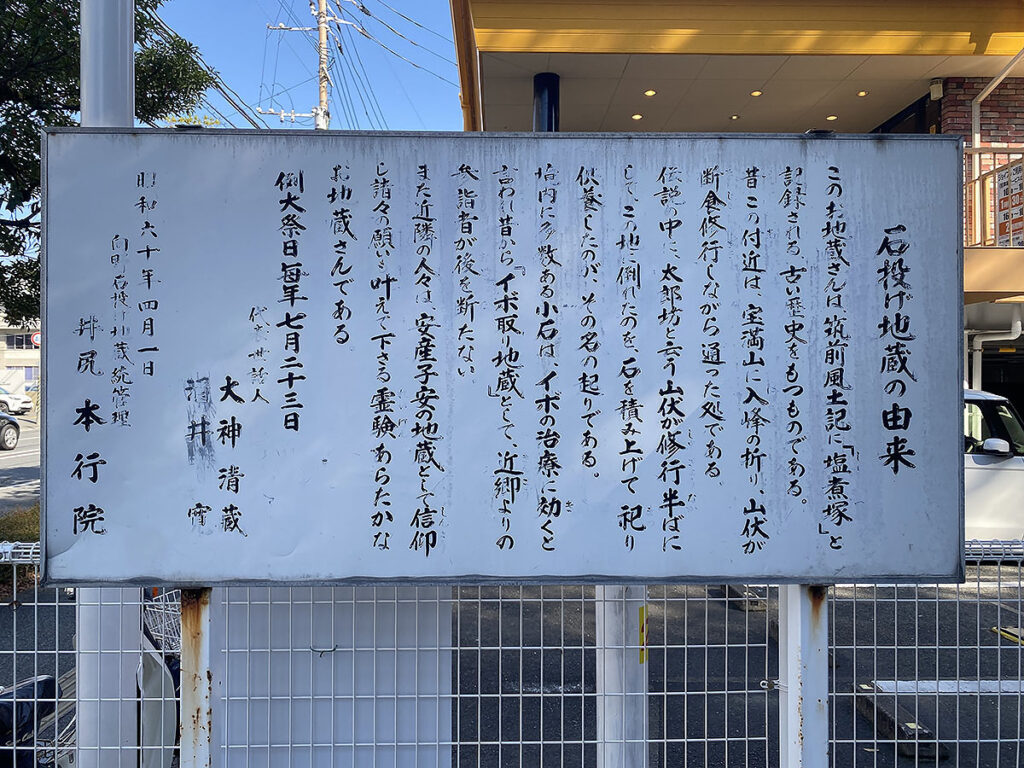 石投げ地蔵の由来
このお地蔵さんは、筑前風土記に「塩煮塚」と
記録される、古い歴史をもつものである。
昔この付近は、宝満山に入峰の折り、山伏が
断食修行しながら通った処である。
伝説の中に、太郎坊と云う山伏が修行半ばに
して、この地に倒れたのを、石を積み上げて祀り
供養したのが、その名の起りである。
境内に多数ある小石は、イボの治療に効くと
言われ昔から「イボ取り地蔵」として、近郷よりの
参詣者が後を断たない。
また近隣の人々は、安産子安の地蔵として信仰
し諸々の願いを叶えて下さる霊験あらたかな
お地蔵さんである
例大祭日毎年七月二十三日
代表世話人
大神清蔵
昭和六十年四月一日
石投げ地蔵堂管理
井尻 本行院